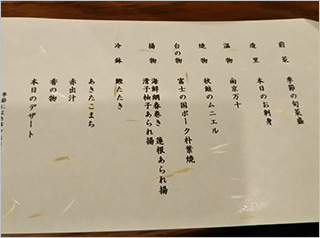 前菜 季節の旬菜盛
造里 本日のお刺身
温物 南京万十
焼物 秋鮭のムニエル
台の物 富士の国ポーク朴葉焼
揚物 海鮮鯛春巻き 蓮根あられ揚
滑子柚子あられ揚
冷鉢 鰹たたき
あきたこまち
赤出汁
香の物
本日のデザート
季節によりまして